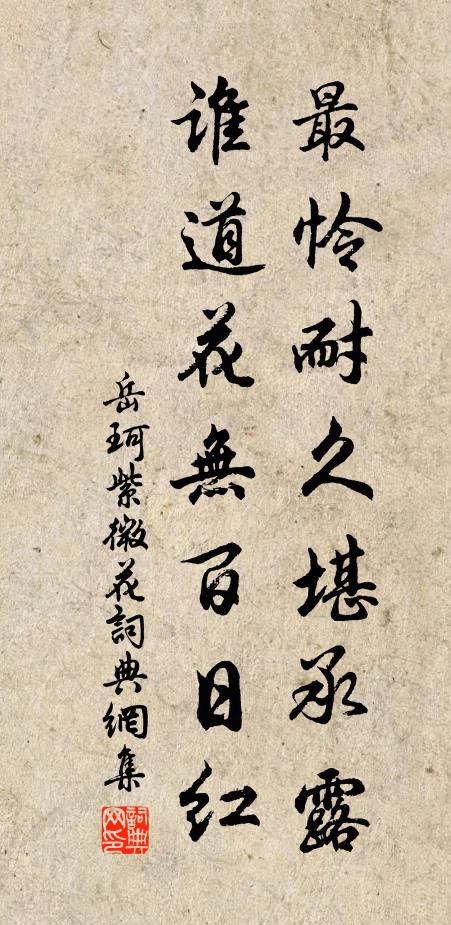 最怜耐久堪承露
谁道花無百日紅
岳珂紫微花詞典網集
詞典网印